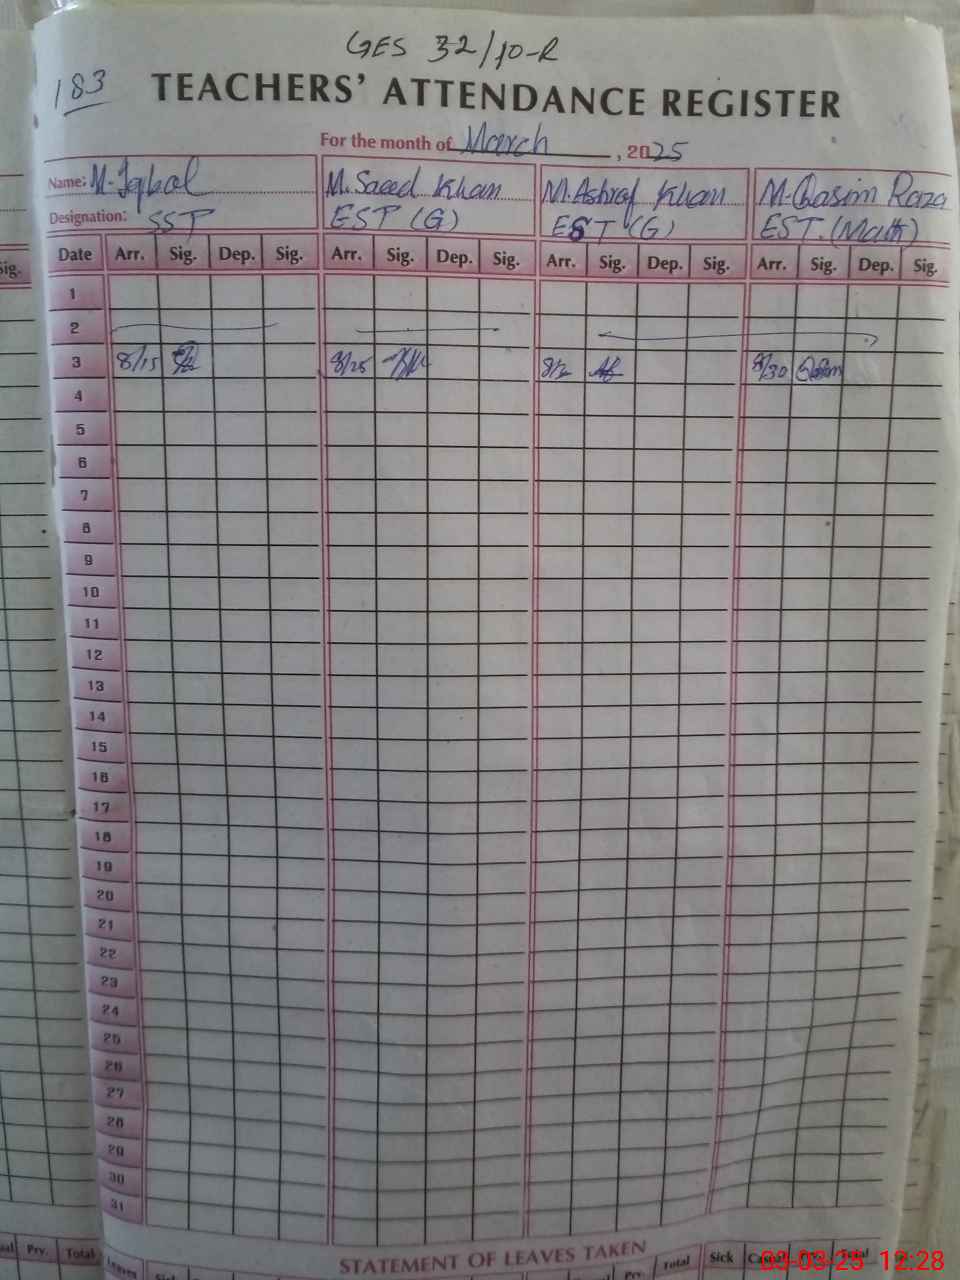 GES 32/10-R
183
TEACHERS' ATTENDANCE REGISTER
For the month of March, 2025
Name: M. Iqbal M. Saeed Khan M. Ashraf Khan M. Qasim Raza
Designation: SST EST (G) EST (G) EST. (Math)
Sig. Date Arr. Sig. Dep. Sig. Arr. Sig. Dep. Sig. Arr. Sig. Dep. Sig. Arr. Sig. Dep. Sig.
1
2
3 8/15 8/25 8/30
4
5
6
7
8
9
10
11
12
13
14
15
16
17
18
19
20
21
22
23
24
25
26
27
28
29
30
31
STATEMENT OF LEAVES TAKEN
Prv. Total Leaves Prv. Total Sick Casual Prv. Total
03-03-25 12:28